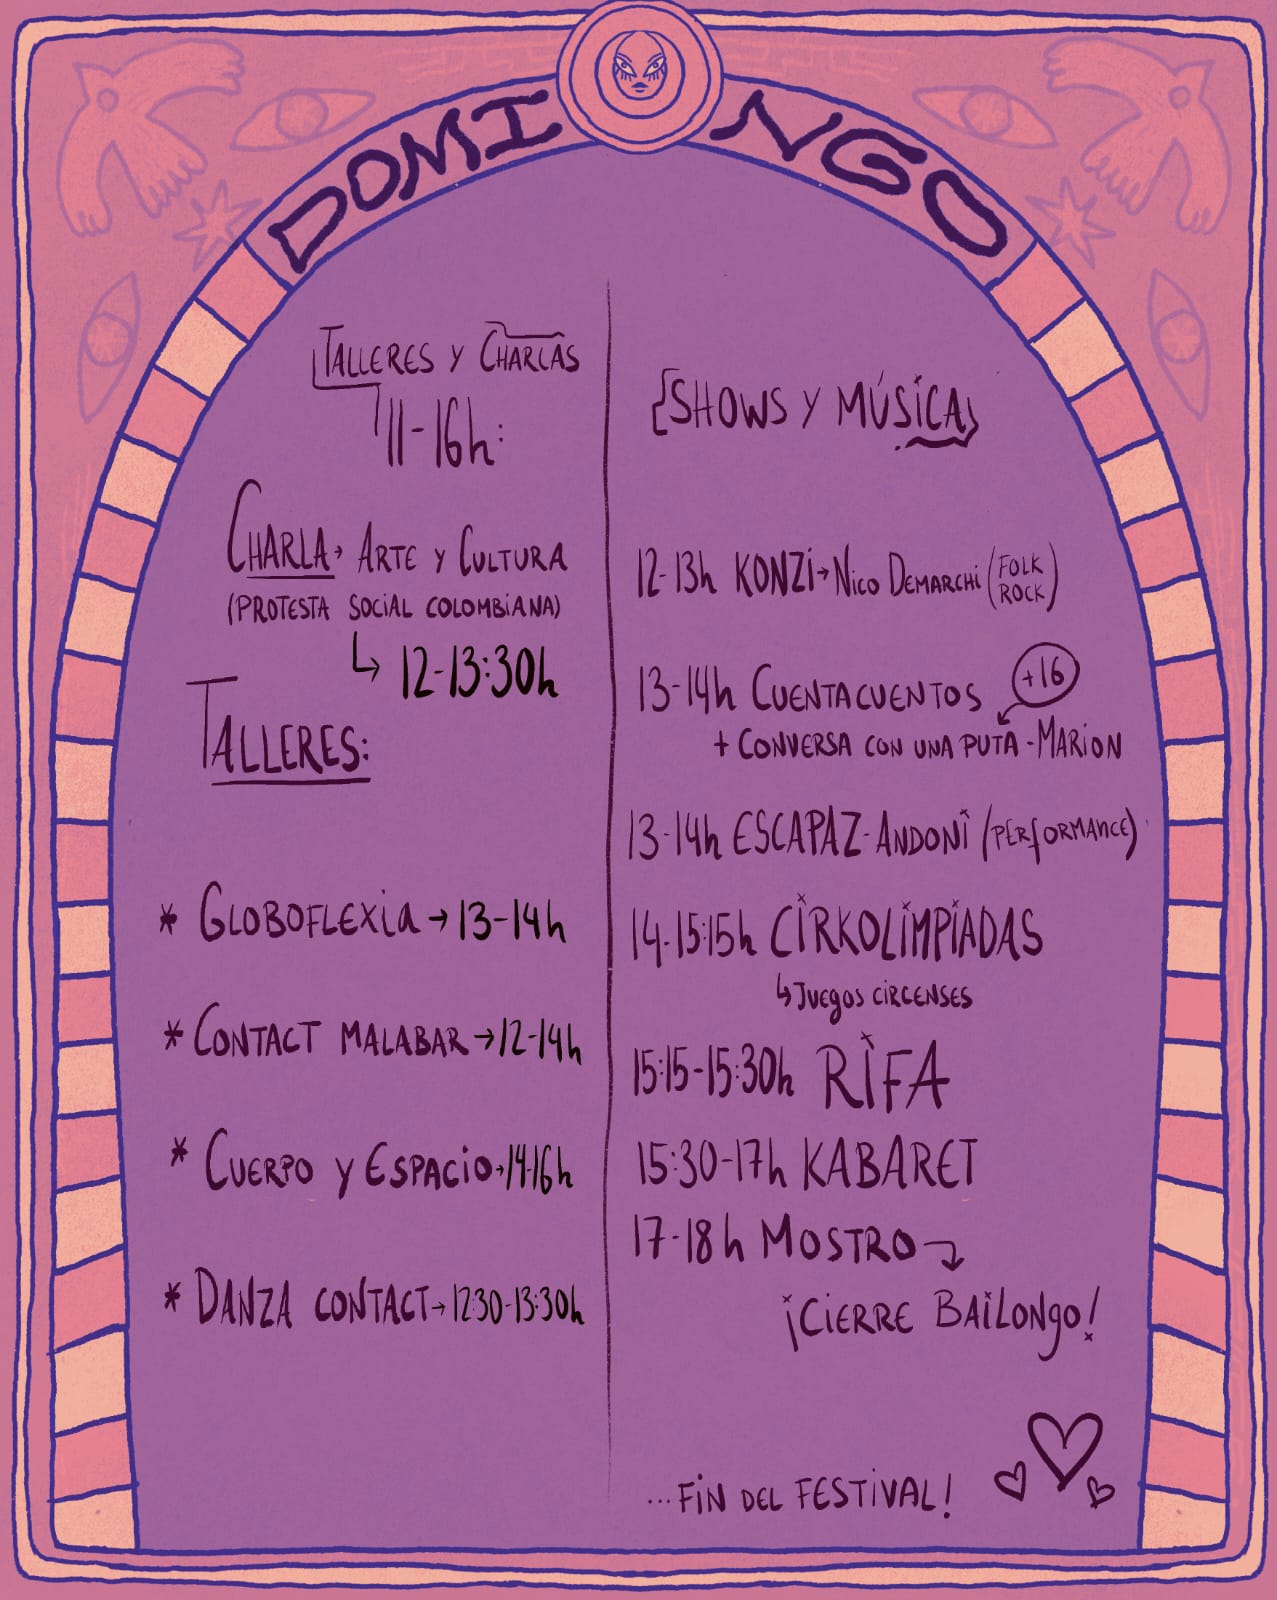 DOMINGO
TALLERES Y CHARLAS
11-16h:
CHARLA → ARTE Y CULTURA
(PROTESTA SOCIAL COLOMBIANA)
↳ 12-13:30h
TALLERES:
* GLOBOFLEXIA → 13-14h
* CONTACT MALABAR → 12-14h
* CUERPO Y ESPACIO → 14-16h
* DANZA CONTACT → 12:30-13:30h
{SHOWS Y MÚSICA}
12-13h KONZI → NICO DEMARCHI (FOLK
ROCK)
13-14h CUENTACUENTOS +16
+ CONVERSA CON UNA PUTA - MARION
13-14h ESCAPAZ - ANDONI (PERFORMANCE)
14-15:15h CIRKOLIMPIADAS
↳ JUEGOS CIRCENSES
15:15-15:30h RIFA
15:30-17h KABARET
17-18h MOSTRO
¡CIERRE BAILONGO!
...FIN DEL FESTIVAL!